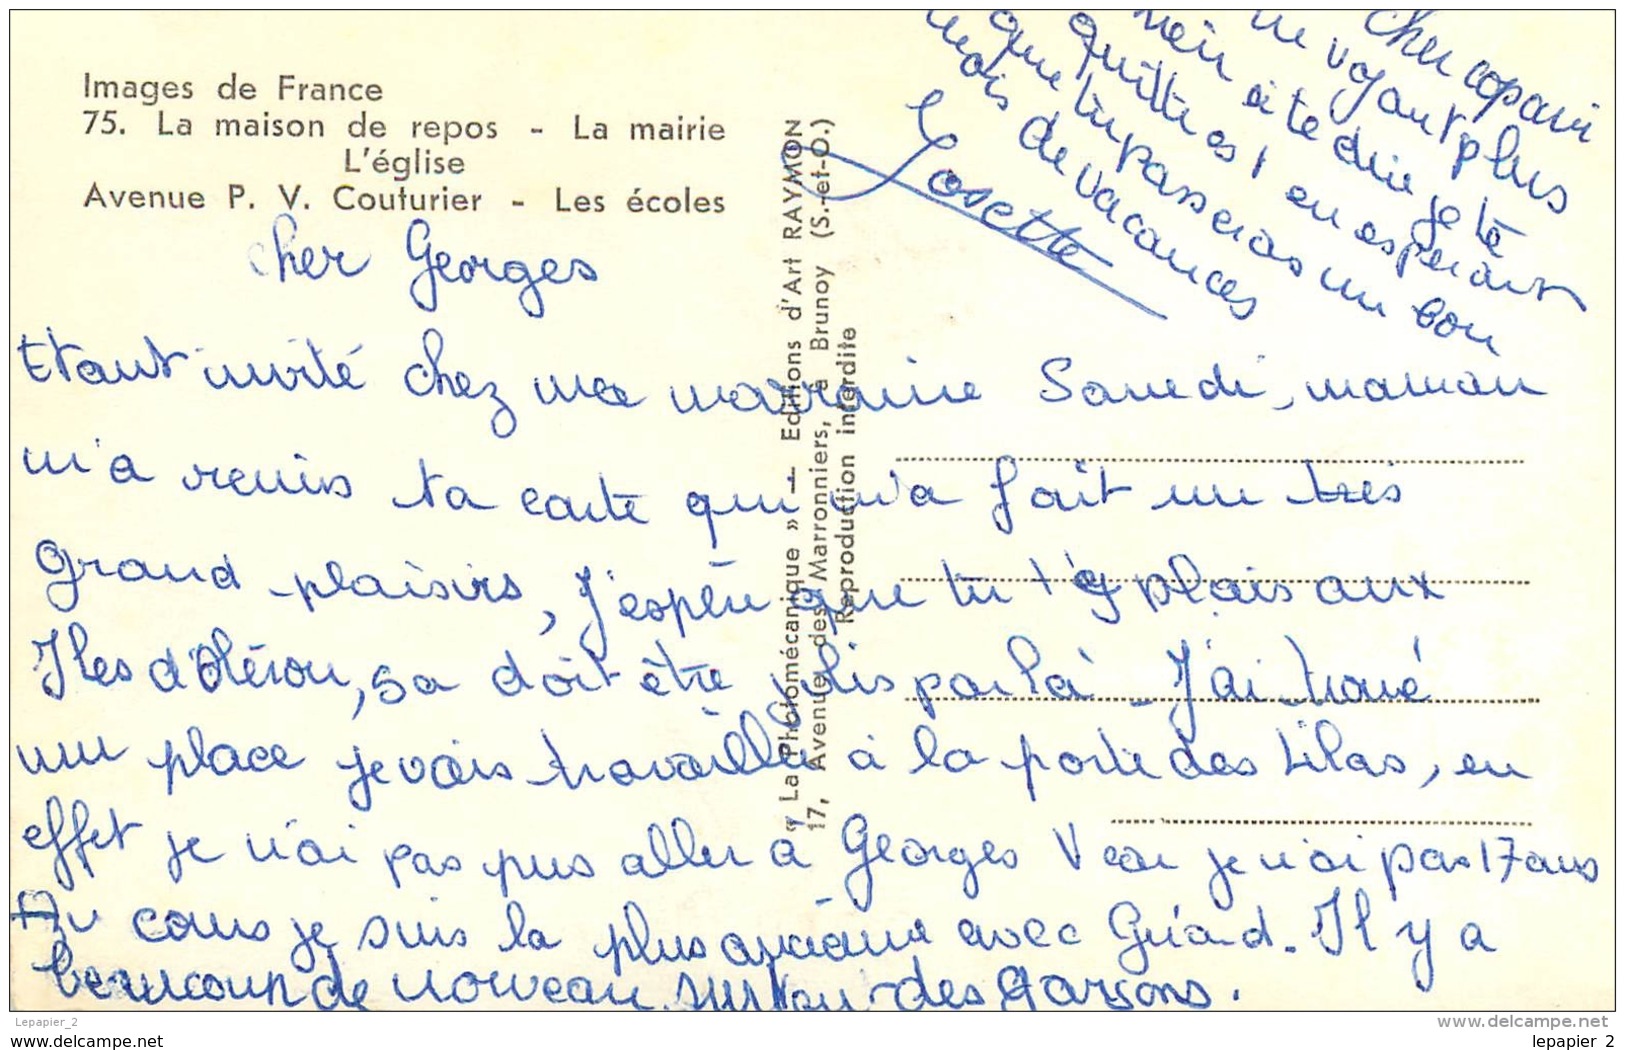 Images de France
75. La maison de repos - La mairie
L'église
Avenue P. V. Couturier - Les écoles
« La Photomécanique » — Editions d'Art RAYMON
17, Avenue des Marronniers, à Brunoy (S.-et-O.)
Reproduction interdite
cher Georges
Etant invité chez ma marraine Samedi, maman
m'a remis ta carte qui m'a fait un très
grand plaisirs, J'espère que tu t'y plais aux
Iles d'Oléron, sa doit être jolis par là - J'ai trouvé
une place je vais travailler à la porte des Lilas, en
effet je n'ai pas pus aller à Georges V car je n'ai pas 17 ans
Au cours je suis la plus ancienne avec Gérard. Il y a
beaucoup de nouveau surtout des garçons.
Cher copain
ne voyant plus
rien à te dire je te
quittes, en esperant
que tu passeras un bon
mois de vacances
Josette
Lepapier_2
www.delcampe.net
lepapier_2
lepapier_2